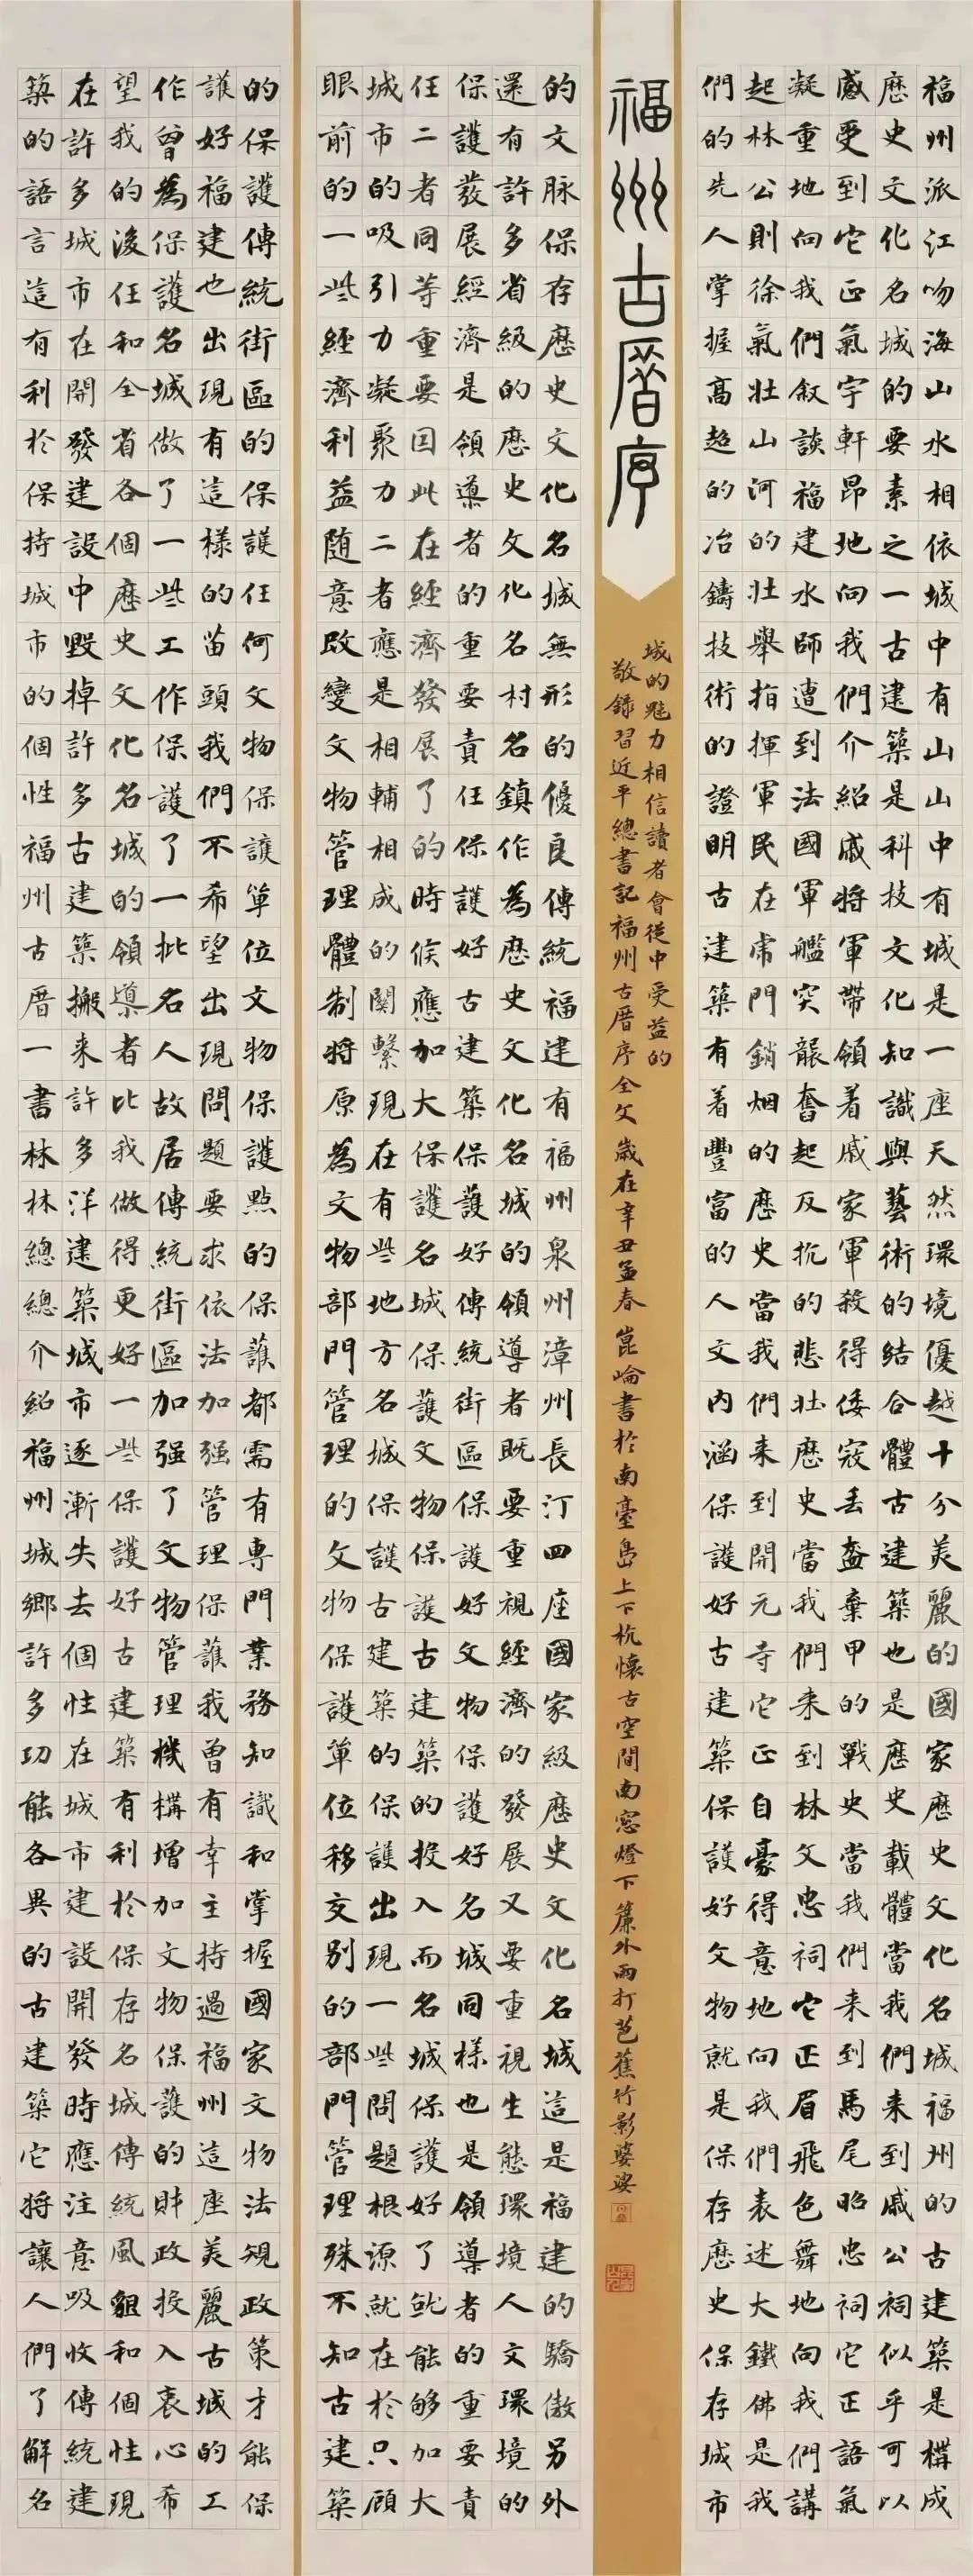 福州古厝序
福州派江吻海山水相依城中有山山中有城是一座天然環境優越十分美麗的國家歷史文化名城福州的古建築是構成
歷史文化名城的要素之一古建築是科技文化知識與藝術的結合體古建築也是歷史載體當我們來到戚公祠似乎可以
感受到它正氣宇軒昂地向我們介紹戚將軍帶領着戚家軍殺得倭寇丟盔棄甲的戰史當我們來到馬尾昭忠祠它正語氣
凝重地向我們敘談福建水師遭到法國軍艦突襲奮起反抗的悲壯歷史當我們來到林文忠祠它正眉飛色舞地向我們講
起林公則徐氣壯山河的壯舉指揮軍民在虎門銷烟的歷史當我們來到開元寺它正自豪得意地向我們表述大鐵佛是我
們的先人掌握高超的冶鑄技術的證明古建築有着豐富的人文內涵保護好古建築保護好文物就是保存歷史保存城市
的文脉保存歷史文化名城無形的優良傳統福建有福州泉州漳州長汀四座國家級歷史文化名城這是福建的驕傲另外
還有許多省級的歷史文化名村名鎮作為歷史文化名城的領導者既要重視經濟的發展又要重視生態環境人文環境的
保護發展經濟是領導者的重要責任保護好古建築保護好傳統街區保護好文物保護好名城同樣也是領導者的重要責
任二者同等重要因此在經濟發展了的時候應加大保護名城保護文物保護古建築的投入而名城保護好了就能够加大
城市的吸引力凝聚力二者應是相輔相成的關繫現在有些地方名城保護古建築的保護出現一些問題根源就在於只顧
眼前的一些經濟利益随意改變文物管理體制將原為文物部門管理的文物保護單位移交别的部門管理殊不知古建築
的保護傳統街區的保護任何文物保護單位文物保護點的保護都需有專門業務知識和掌握國家文物法規政策才能保
護好福建也出現有這樣的苗頭我們不希望出現問題要求依法加强管理保護我曾有幸主持過福州這座美麗古城的工
作曾為保護名城做了一些工作保護了一批名人故居傳統街區加强了文物管理機構增加文物保護的財政投入衷心希
望我的後任和全省各個歷史文化名城的領導者比我做得更好一些保護好古建築有利於保存名城傳統風貌和個性現
在許多城市在開發建設中毀掉許多古建築搬來許多洋建築城市逐漸失去個性在城市建設開發時應注意吸收傳統建
築的語言這有利於保持城市的個性福州古厝一書林林總總介紹福州城鄉許多功能各異的古建築它將讓人們了解名
城的魅力相信讀者會從中受益的
敬錄習近平總書記福州古厝序全文歲在辛丑孟春崑崘書於南臺島上下杭懷古空間南窓燈下簾外雨打芭蕉竹影婆娑